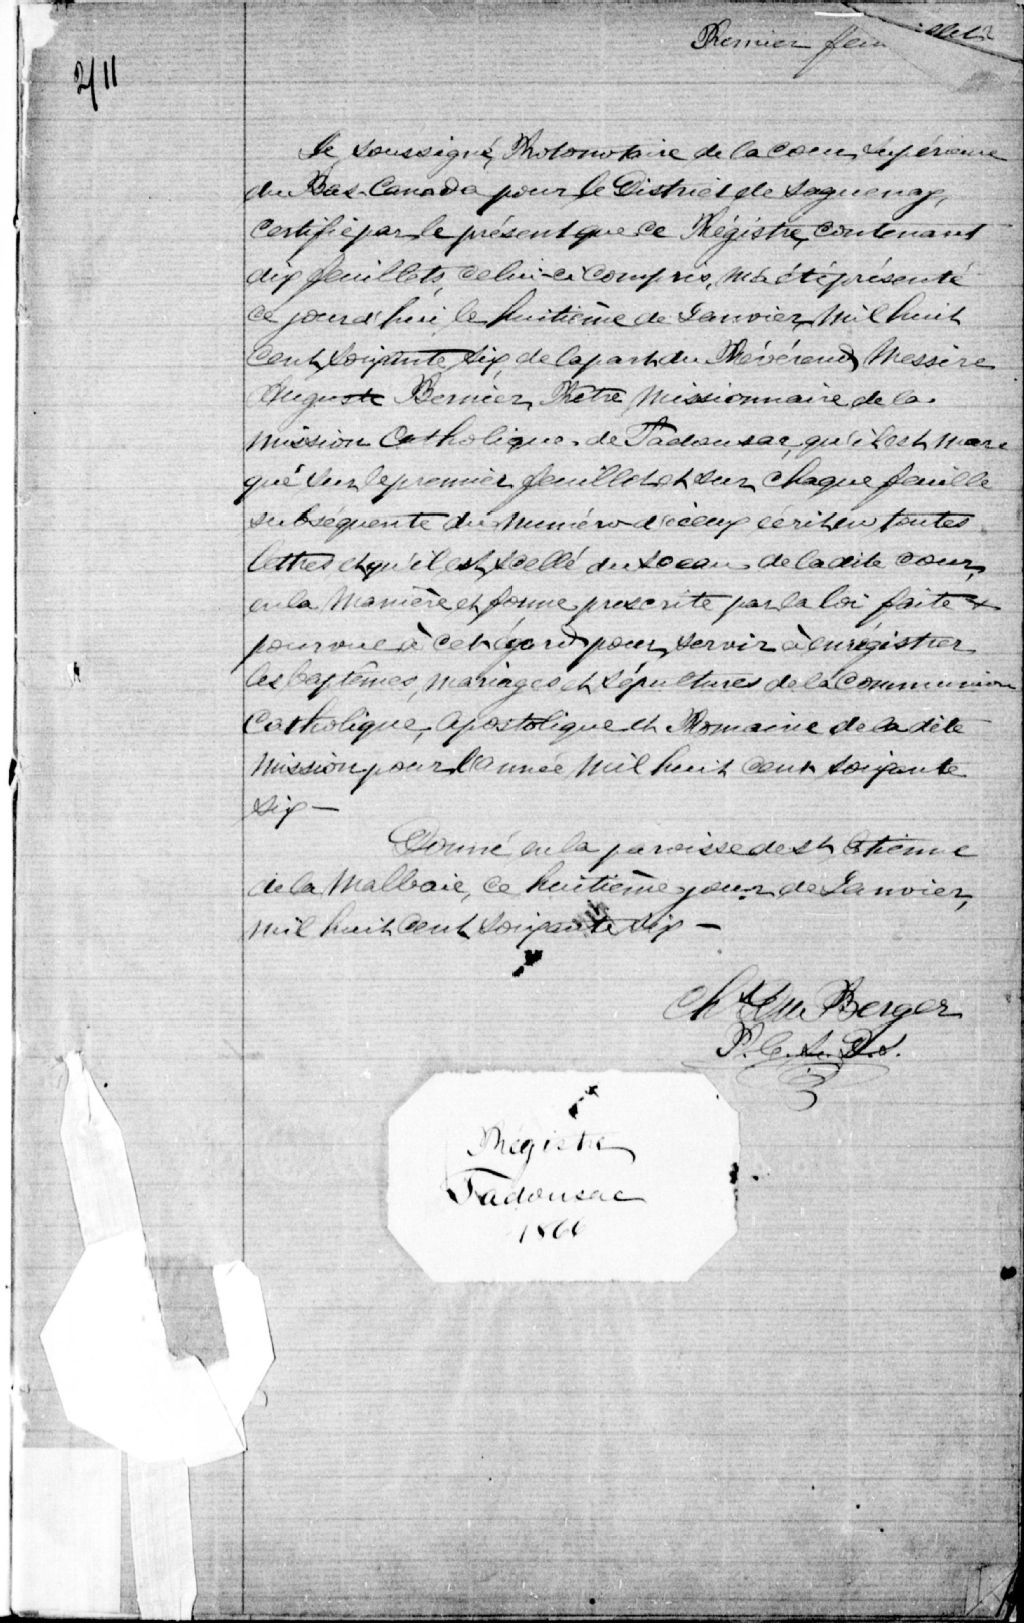 Premier feuillet
2/11
Je soussigné, Protonotaire de la Cour Supérieure
du Bas-Canada pour le District de Saguenay,
certifie par le présent que ce Régistre, contenant
dix feuillets, celui-ci compris, m'a été présenté
ce jourd'hui le huitième de Janvier, Mil huit
cent soixante six, de la part du Révérend Messire
Auguste Bernier, Prêtre, Missionnaire de la
Mission Catholique de Tadousac, qu'il est mar
qué sur le premier feuillet et sur chaque feuille
subséquente du Numéro d'iceux écrit en toutes
lettres et qu'il est scellé du sceau de la dite Cour,
en la Manière et forme prescrite par la loi faite &
pourvue à cet égard pour servir à enrégistrer
les baptêmes, mariages et sépultures de la Communion
Catholique, Apostolique et Romaine de la dite
Mission pour l'année Mil huit cent soixante
six —
Donné en la paroisse de St Etienne
de la Malbaie, ce huitième jour de Janvier,
mil huit cent soixante six —
Chs Du Berger
P. C. S. D. S.
Régistre
Tadousac
1866